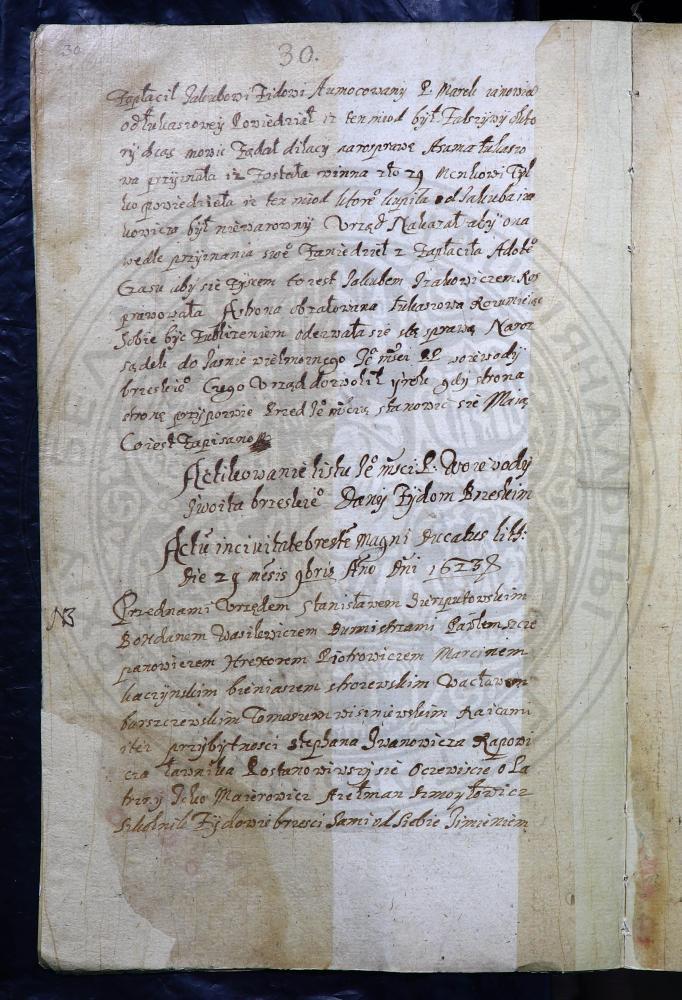 30 30.
Zapłacił Jakubowi Zidowi Aumocowany P. Marek Janowicz
od Łukaszowey Powiedział iz ten miod był Falszywy
ry chcąc mowic Ządał dilacy narosprawę Asama Łukaszo
wa przyznała iz Została winna zło 29 Menkowi Tyl
ko powiedziła iz ten miod ktorę kupiła od Jakuba
kowicza był niewarowny Urząd Nakazał aby ona
wedle przyznania swę Zaniedziel 2 Zapłaciła Adotę
Czasu aby się Zyzem to iest Jakubem Izakowiczem Ros
prawowała Astrona obzałowana Łukaszowa Rozumieiąc
Sobie byc Zubliżeniem odezwała się stą sprawą Naroz
sądek do Jasnie wielmoznego Ję msci P. woiewody
brzeskię Czego Urząd dozwolił y rok gdy strona
stronę przypozwie Przed Ję mscią stanowic się Maią
Co iest Zapisano
Actikowanie listu Ję msci P. Woiewody
Iwoita brzeskię Dany Zydom Brzeskim
Actū in civitate breste Magni Ducatus lith:
die 29 mēsis 9bris Año Dñi 1623
NB
Przednami Urzędem Stanisławem
Bohdanem Wasilewiczem Burmistrzami Pawłem szcze
panowiczem Piotrowiczem Marcinem
kaczynskim bieniaszem strozewskim Wacławem
barszczewskim Tomaszem wisniewskim Raicami
itez przybytnosci Stephana Iwanowicza
cza ławnika Postanowiwszy się Oczewiscie
Icko Maierowicz
szkolnik Zydowie brzesci Sami od Siebie Jimieniem